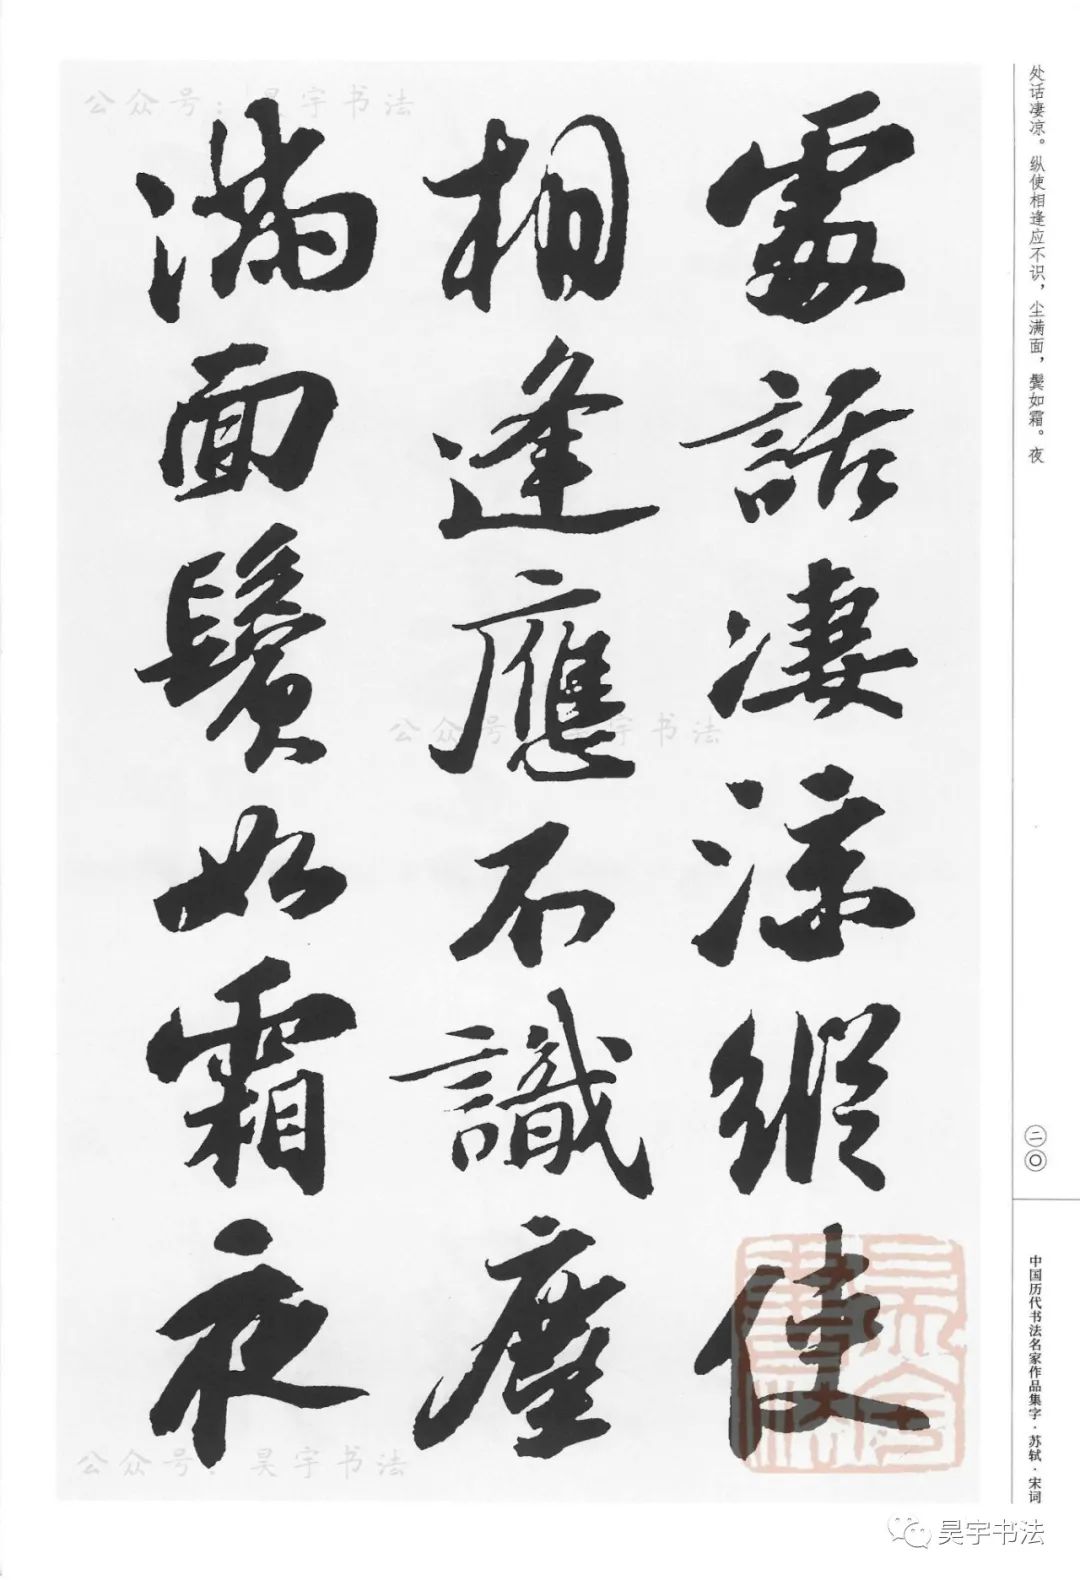 处话凄凉。纵使相逢应不识，尘满面，鬓如霜。夜
處話凄涼縱使
相逢應不識塵
滿面鬢如霜夜
二〇
中国历代书法名家作品集字·苏轼·宋词
公众号：昊宇书法
公众号：昊宇书法
公众号：昊宇书法
昊宇書法
昊宇书法